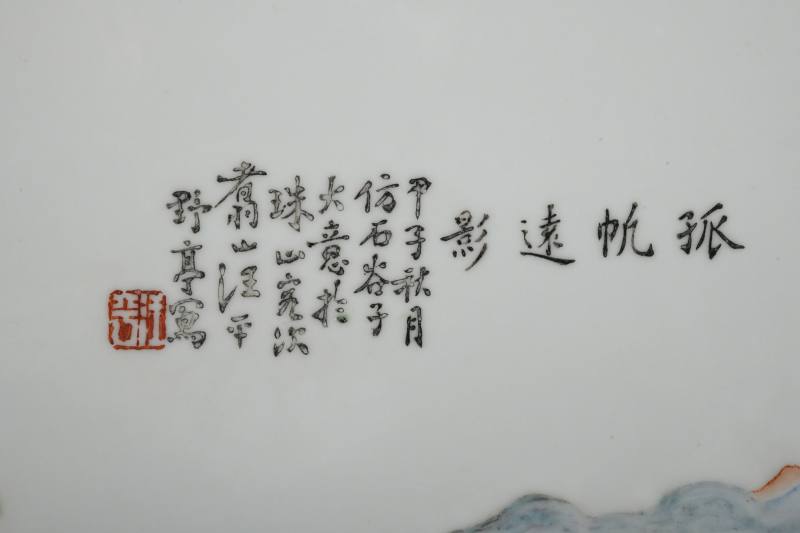 孤帆遠影
甲子秋月
仿石谷子
大意於
珠山客次
翥山汪平
野亭寫